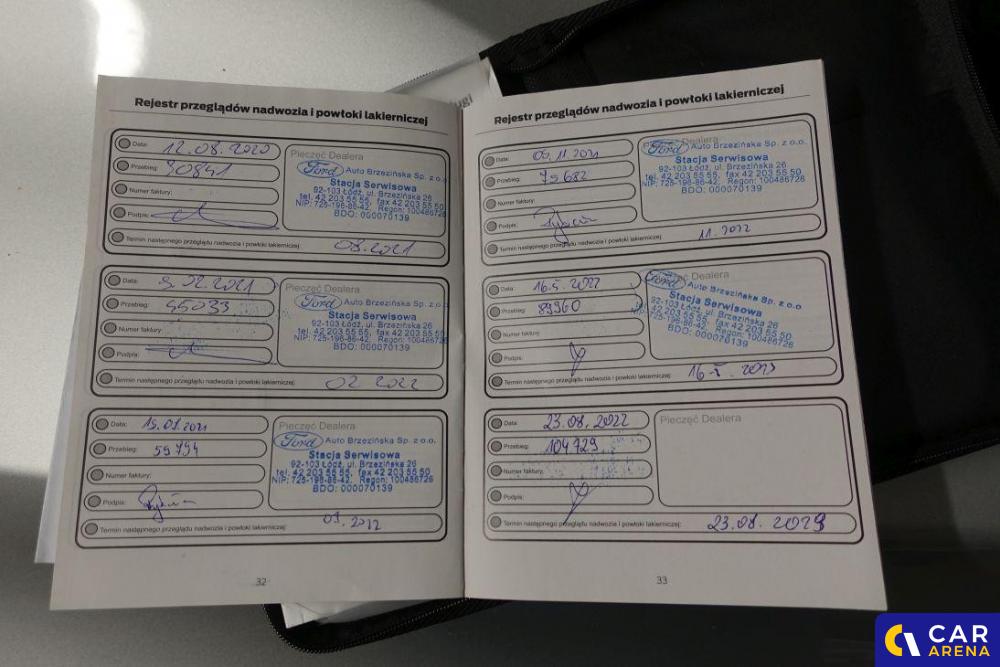 ługi
Rejestr przeglądów nadwozia i powłoki lakierniczej
Data: 12.08.2020
Przebieg: 30841
Numer faktury:
Podpis:
Pieczęć Dealera
Ford Auto Brzezińska Sp. z o.o.
Stacja Serwisowa
92-103 Łódź, ul. Brzezińska 26
tel. 42 203 55 55, fax 42 203 55 50
NIP: 725-198-86-42, Regon: 100486728
BDO: 000070139
Termin następnego przeglądu nadwozia i powłoki lakierniczej: 08.2021
Data: 9.02.2021
Przebieg: 45033
Numer faktury:
Podpis:
Pieczęć Dealera
Ford Auto Brzezińska Sp. z o.o.
Stacja Serwisowa
92-103 Łódź, ul. Brzezińska 26
tel. 42 203 55 55, fax 42 203 55 50
NIP: 725-198-86-42, Regon: 100486728
BDO: 000070139
Termin następnego przeglądu nadwozia i powłoki lakierniczej: 02 2022
Data:
Przebieg: 59794
Numer faktury:
Podpis:
Pieczęć Dealera
Ford Auto Brzezińska Sp. z o.o.
Stacja Serwisowa
92-103 Łódź, ul. Brzezińska 26
tel. 42 203 55 55, fax 42 203 55 50
NIP: 725-198-86-42, Regon: 100486728
BDO: 000070139
Termin następnego przeglądu nadwozia i powłoki lakierniczej:
32
Rejestr przeglądów nadwozia i powłoki lakierniczej
Data: 09.11.2021
Przebieg: 79682
Numer faktury:
Podpis:
Pieczęć Dealera
Ford Auto Brzezińska Sp. z o.o.
Stacja Serwisowa
92-103 Łódź, ul. Brzezińska 26
tel. 42 203 55 55, fax 42 203 55 50
NIP: 725-198-86-42, Regon: 100486728
BDO: 000070139
Termin następnego przeglądu nadwozia i powłoki lakierniczej: 11.2022
Data: 16.5.2022
Przebieg: 89960
Numer faktury:
Podpis:
Pieczęć Dealera
Ford Auto Brzezińska Sp. z o.o.
Stacja Serwisowa
92-103 Łódź, ul. Brzezińska 26
tel. 42 203 55 55, fax 42 203 55 50
NIP: 725-198-86-42, Regon: 100486728
BDO: 000070139
Termin następnego przeglądu nadwozia i powłoki lakierniczej: 16.5. 2023
Data: 23.08.2022
Przebieg: 104729
Numer faktury:
Podpis:
Pieczęć Dealera
Termin następnego przeglądu nadwozia i powłoki lakierniczej: 23.08.2023
33
CAR
ARENA